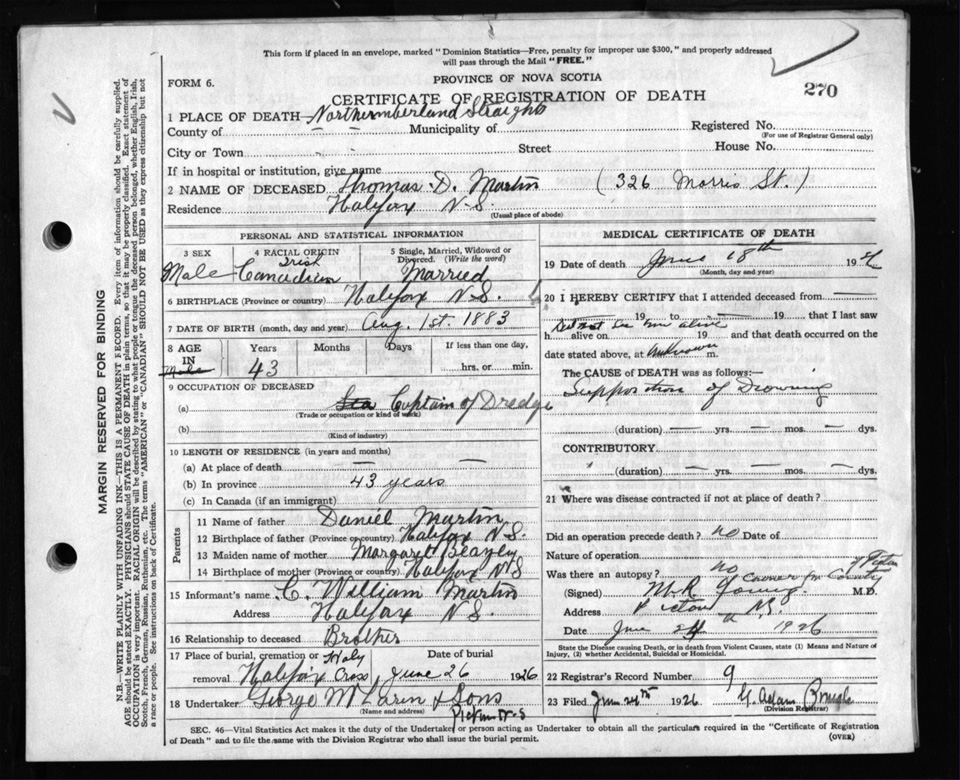 This form if placed in an envelope, marked "Dominion Statistics—Free, penalty for improper use $300," and properly addressed
will pass through the Mail "FREE."
PROVINCE OF NOVA SCOTIA
FORM 6.
270
CERTIFICATE OF REGISTRATION OF DEATH
1 PLACE OF DEATH Northumberland Straights
County of — — Municipality of Registered No.
(For use of Registrar General only)
City or Town Street House No.
If in hospital or institution, give name
2 NAME OF DECEASED Thomas D. Martin (326 Morris St.)
Residence Halifax N.S.
(Usual place of abode)
PERSONAL AND STATISTICAL INFORMATION
3 SEX
Male
4 RACIAL ORIGIN
Irish
Canadian
5 Single, Married, Widowed or
Divorced. (Write the word)
Married
6 BIRTHPLACE (Province or country) Halifax N.S.
7 DATE OF BIRTH (month, day and year) Aug. 1st. 1883
8 AGE
IN
Male
Years
43
Months
Days
If less than one day,
hrs. or min.
9 OCCUPATION OF DECEASED
(a) Sea Captain of Dredge
(Trade or occupation or kind of work)
(b)
(Kind of industry)
10 LENGTH OF RESIDENCE (in years and months)
(a) At place of death — —
(b) In province 43 years
(c) In Canada (if an immigrant)
Parents
11 Name of father Daniel Martin
12 Birthplace of father (Province or country) Halifax N.S.
13 Maiden name of mother Margaret Beazley
14 Birthplace of mother (Province or country) Halifax N S
15 Informant's name C. William Martin
Address Halifax N S.
16 Relationship to deceased Brother
17 Place of burial, cremation or
removal Halifax Holy Cross
Date of burial
June 26 1926
18 Undertaker George McLaren & Sons
(Name and address) Pictou N-S
MEDICAL CERTIFICATE OF DEATH
19 Date of death June 18th 192
(Month, day and year)
20 I HEREBY CERTIFY that I attended deceased from
— 19 — to — 19 — that I last saw
Did not see him alive
h alive on 19 and that death occurred on the
date stated above, at unknown m.
The CAUSE of DEATH was as follows:—
Supposition of Drowning
(duration) — yrs. — mos. — dys.
CONTRIBUTORY.
(duration) — yrs. — mos. — dys.
21 Where was disease contracted if not at place of death?
Did an operation precede death? no Date of
Nature of operation
Was there an autopsy? no
Coroner for County of Pictou
(Signed) M.R. Young M.D.
Address Pictou N.S.
Date June 24th 1926
State the Disease causing Death, or in death from Violent Causes, state (1) Means and Nature of
Injury, (2) whether Accidental, Suicidal or Homicidal.
22 Registrar's Record Number 9
23 Filed June 24th 1926 Adam
(Division Registrar)
SEC. 46—Vital Statistics Act makes it the duty of the Undertaker or person acting as Undertaker to obtain all the particulars required in the "Certificate of Registration
of Death" and to file the same with the Division Registrar who shall issue the burial permit.
(OVER)
MARGIN RESERVED FOR BINDING
N.B.—WRITE PLAINLY WITH UNFADING INK—THIS IS A PERMANENT RECORD. Every item of information should be carefully supplied.
AGE should be stated EXACTLY. PHYSICIANS should STATE CAUSE OF DEATH in plain terms, so that it may be properly classified. Exact statement of
OCCUPATION is very important. RACIAL ORIGIN will be described by stating to what people or tongue the deceased person belonged, whether English, Irish,
Scotch, French, German, Russian, Ruthenian, etc. The terms "AMERICAN" or "CANADIAN" SHOULD NOT BE USED as they express citizenship but not
a race or people. See instructions on back of Certificate.